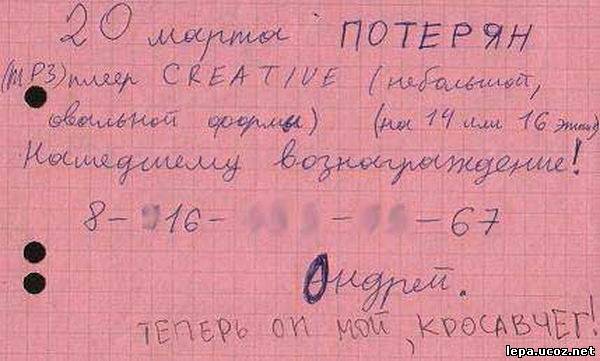 20 марта ПОТЕРЯН
(MP3) плеер CREATIVE (небольшой,
овальной формы) (на 14 или 16 этаже)
Нашедшему вознаграждение!
8-916- - -67
Андрей.
ТЕПЕРЬ ОН МОЙ, КРОСАВЧЕГ!
lepa.ucoz.net